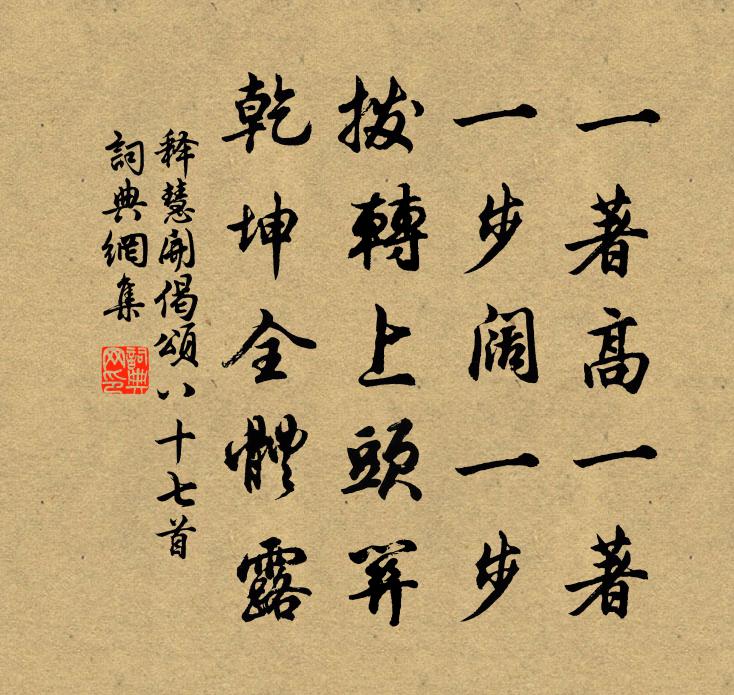 一著高一著
一步闊一步
撥轉上頭关
乾坤全體露
释慧開偈頌八十七首
詞典網集
詞典网印